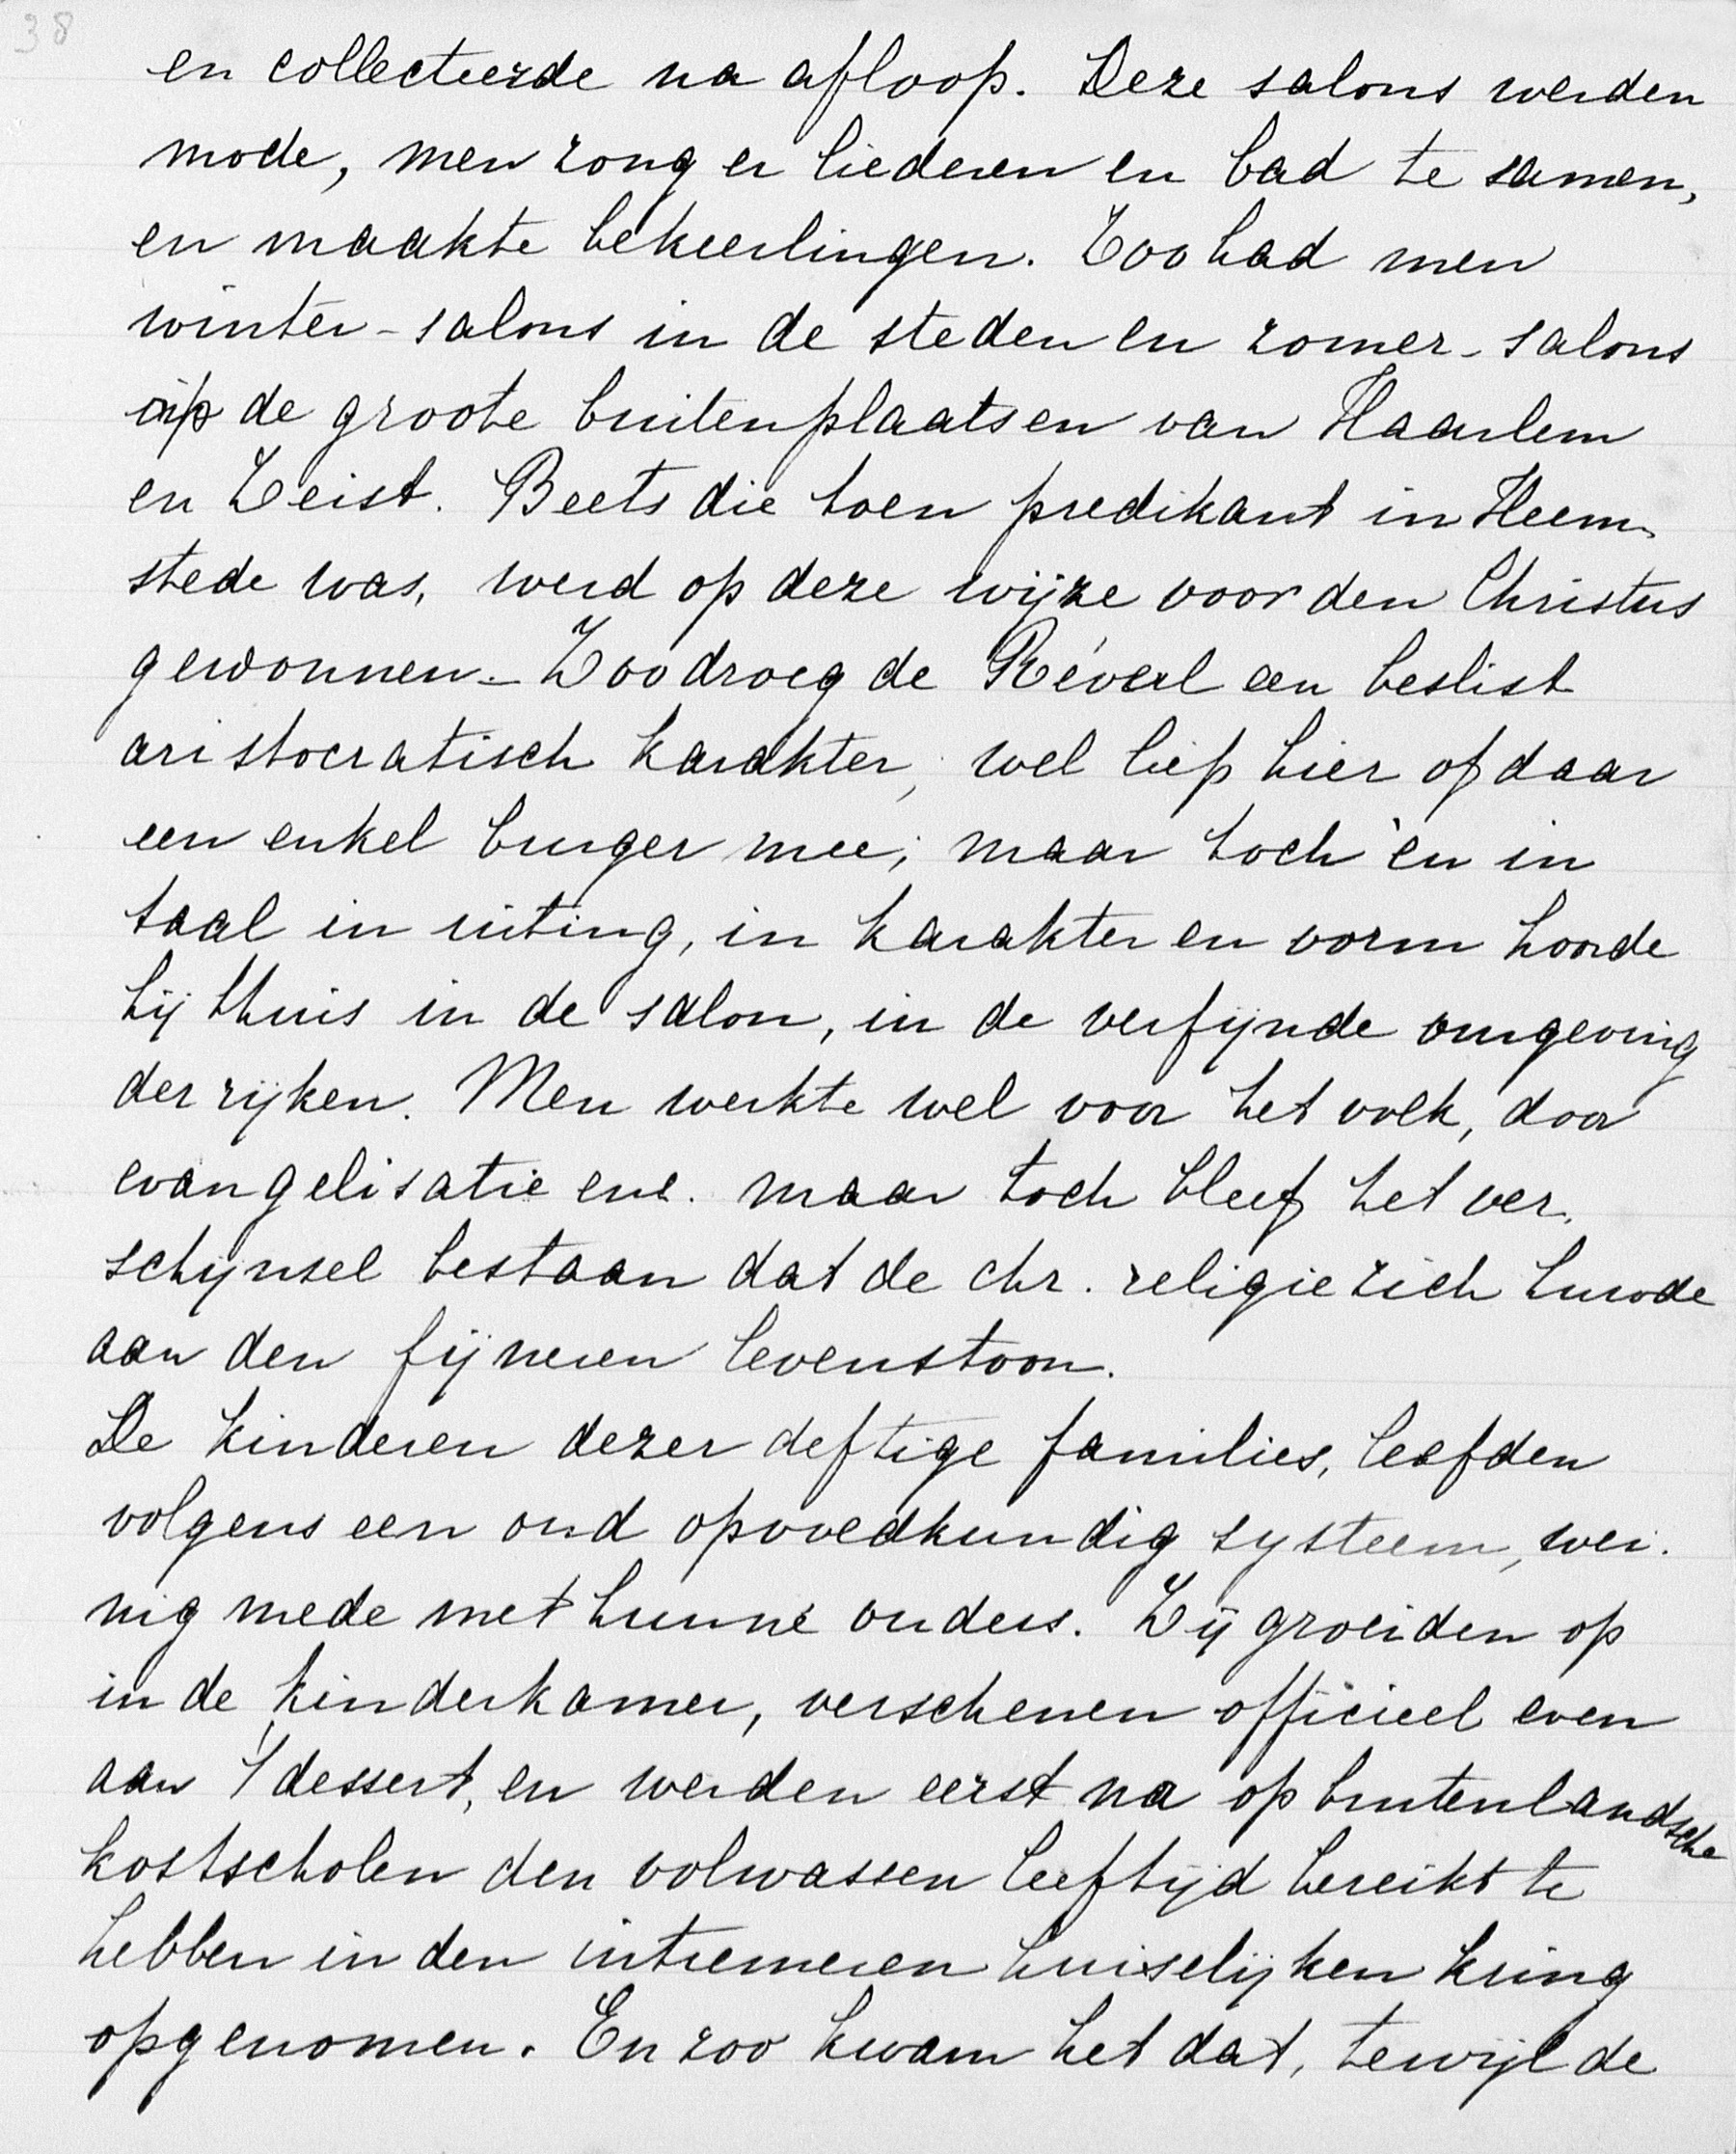 38
en collecteerde na afloop. Deze salons werden
mode, men zong er liederen en bad te samen,
en maakte bekeerlingen. Zoo had men
winter-salons in de steden en zomer-salons
op de groote buitenplaatsen van Haarlem
en Zeist. Beets die toen predikant in Heem-
stede was, werd op deze wijze voor den Christus
gewonnen. Zoo droeg de Réveil een beslist
aristocratisch karakter, wel liep hier of daar
een enkel burger mee; maar toch en in
taal in uiting, in karakter en vorm hoorde
hij thuis in de salon, in de verfijnde omgeving
der rijken. Men werkte wel voor het volk, door
evangelisatie enz. maar toch bleef het ver-
schijnsel bestaan dat de chr. religie zich huwde
aan den fijneren levenstoon.
De kinderen dezer deftige families, leefden
volgens een oud opvoedkundig systeem, wei-
nig mede met hunne ouders. Zij groeiden op
in de kinderkamer, verschenen officieel even
aan 't dessert, en werden eerst na op buitenlandsche
kostscholen den volwassen leeftijd bereikt te
hebben in den intiemeren huiselijken kring
opgenomen. En zoo kwam het dat, terwijl de